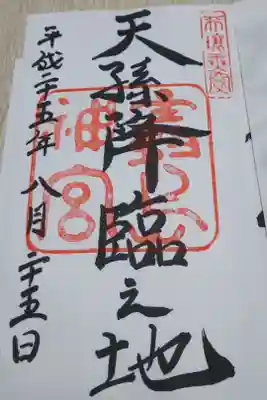 天孫降臨之地
平成二十五年八月二十五日
神宮